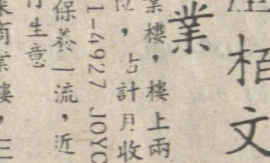 栢文
業
業樓，樓上兩
，占計月收
1-4927 JOYC
保養一流，近
生意
商業樓，三